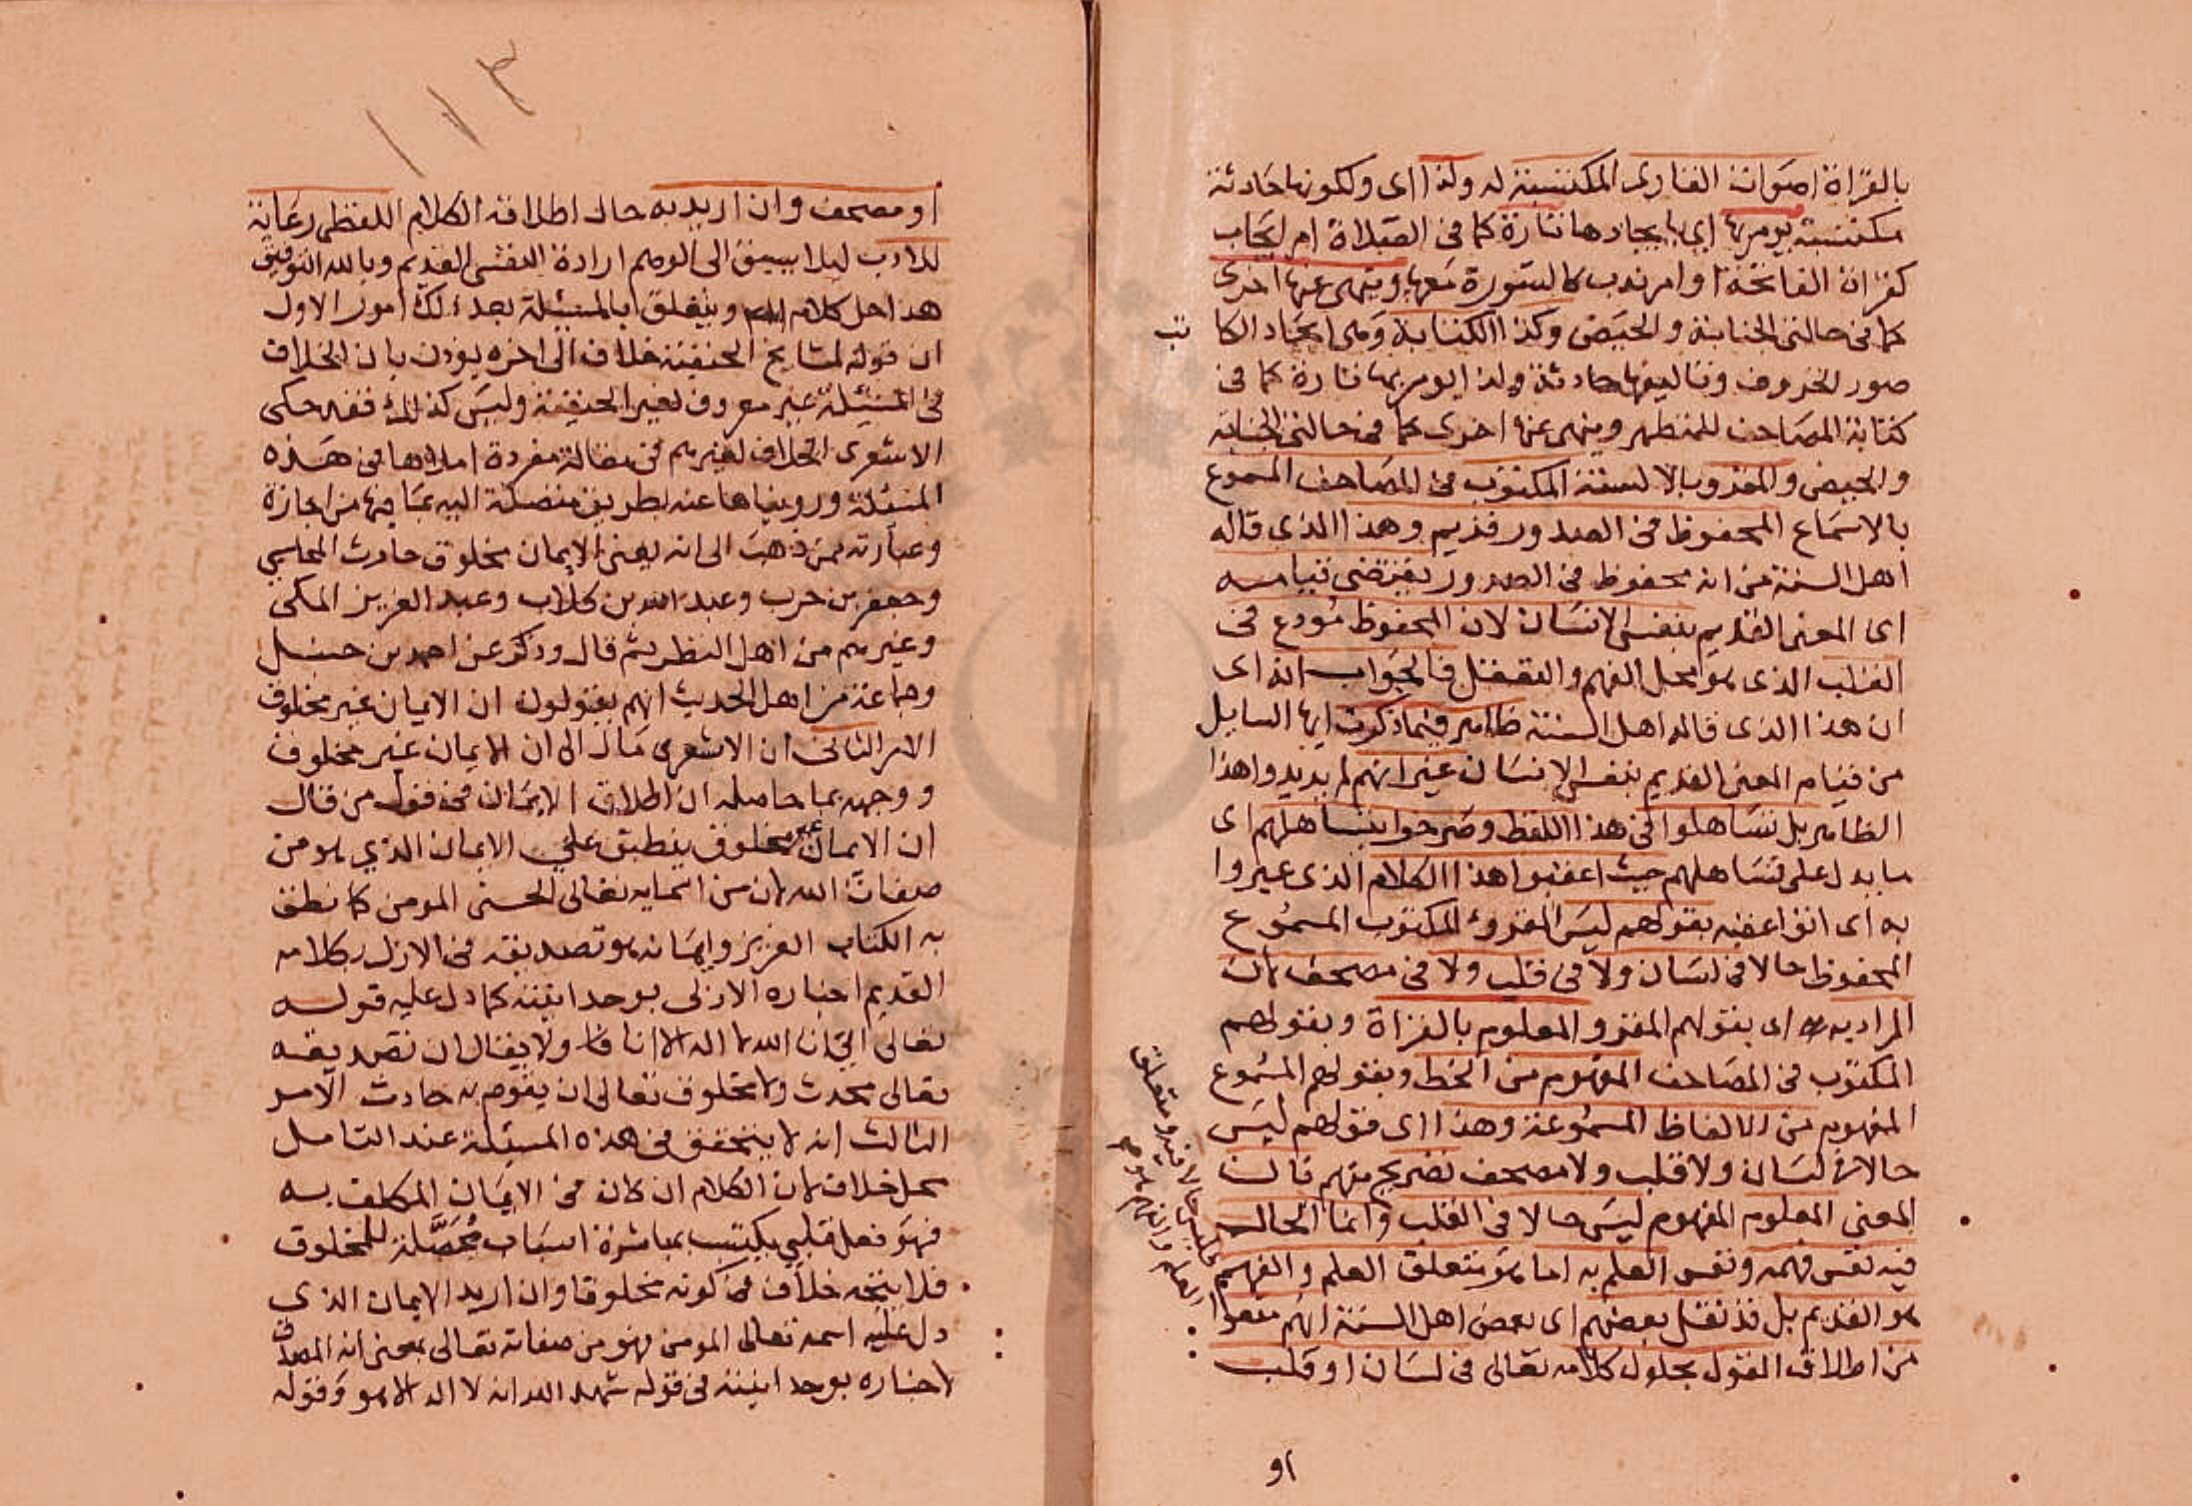 بالقراة اصوات القارى المكتسبة له ولذا اى ولكونها حادثة
مكتسبة يومر بها اى بايجادها تارة كما فى الصلاة امر ايجاب
كقراة الفاتحة او امر ندب كالسورة معها وينهى عنها اخرى
كما فى حالتى الجنابة والحيض وكذا الكتابة وهى ايجاد الكاتب
صور الحروف وتاليفها حادثة ولذا يومر بها تارة كما فى
كتابة المصاحف للمتطهر وينهى عنها اخرى كما فى حالتى الجنابة
والحيض والمقرو بالالسنة المكتوب فى المصاحف المسموع
بالاسماع المحفوظ فى الصدور قديم وهذا الذى قاله
اهل السنة من انه محفوظ فى الصدور يقتضى قيامه
اى المعنى القديم بنفس الانسان لان المحفوظ مودع فى
القلب الذى هو محل الفهم والتعقل فالجواب انه اى
ان هذا الذى قاله اهل السنة ظاهر فيما ذكرت ايها السايل
من قيام المعنى القديم بنفس الانسان غير انهم لم يريدوا هذا
الظاهر بل تساهلوا فى هذا اللفظ وصرحوا بتساهلهم اى
ما يدل على تساهلهم حيث اعقبوا هذا الكلام الذى عبروا
به اى اتوا عقبه بقولهم ليس المقروء المكتوب المسموع
المحفوظ حالا فى لسان ولا فى قلب ولا فى مصحف لان
المراد به اى بقولهم المقرو المعلوم بالقراة وبقولهم
المكتوب فى المصاحف المفهوم من الخط وبقولهم المسموع
المفهوم من الالفاظ المسموعة وهذا اى قولهم ليس
حالا فى لسان ولا قلب ولا مصحف تصريح منهم بان
المعنى المعلوم المفهوم ليس حالا فى القلب وانما الحال
فيه نفس فهمه ونفس العلم به اما هو متعلق العلم والفهم
فليس حالا فيه ومتعلق
العلم والفهم هو
هو القديم بل قد نقل بعضهم اى بعض اهل السنة انهم منعوا
من اطلاق القول بحلول كلامه تعالى فى لسان او قلب
او
١١٣
او مصحف وان اريد به حال اطلاقه الكلام اللفظى رعاية
للادب ليلا يسبق الى الوهم ارادة النفسى القديم وبالله التوفيق
هذا حل كلام ويتعلق بالمسيلة بعد ذلك امور الاول
ان قوله لمشايخ الحنفية خلاف الى اخره يوذن بان الخلاف
فى المسيلة غير معروف لغير الحنفية وليس كذلك فقد حكى
الاشعرى الخلاف لغيرهم فى مقالة مفردة املاها فى هذه
المسئلة ورويناها عنه بطريق متصلة اليه بما فيها من اجازة
وعبارته ممن ذهب الى انه يعنى الايمان مخلوق حارث المحاسبي
وجعفر بن حرب وعبد الله بن كلاب وعبد العزيز المكى
وغيرهم من اهل النظر ثم قال وذكر عن احمد بن حنبل
وجماعة من اهل الحديث انهم يقولون ان الايمان غير مخلوق
الامر الثانى ان الاشعرى مال الى ان الايمان غير مخلوق
ووجهه بما حاصله ان اطلاق الايمان فى قول من قال
ان الايمان غير مخلوق ينطبق علي الايمان الذي هو من
صفات الله لان من اسمايه تعالى الحسنى المومن كما نطق
به الكتاب العزيز وايمانه هو تصديقه فى الازل بكلامه
القديم اخباره الازلى بوحدانيته كما دل عليه قوله
تعالى انى انا الله لا اله الا انا ولا يقال ان تصديقه
تعالى محدث ولا مخلوق تعالى ان يقوم به حادث الامر
الثالث انه لا يتحقق فى هذه المسيلة عند التامل
محل خلاف لان الكلام ان كان فى الايمان المكلف به
فهو فعل قلبي يكتسب بمباشرة اسباب محصلة للمخلوق
فلا يتجه خلاف فى كونه مخلوقا وان اريد الايمان الذى
دل عليه اسمه تعالى المومن فهو من صفاته تعالى بمعنى انه المصدق
لاخباره بوحدانيته فى قوله شهد الله انه لا اله الا هو وقوله